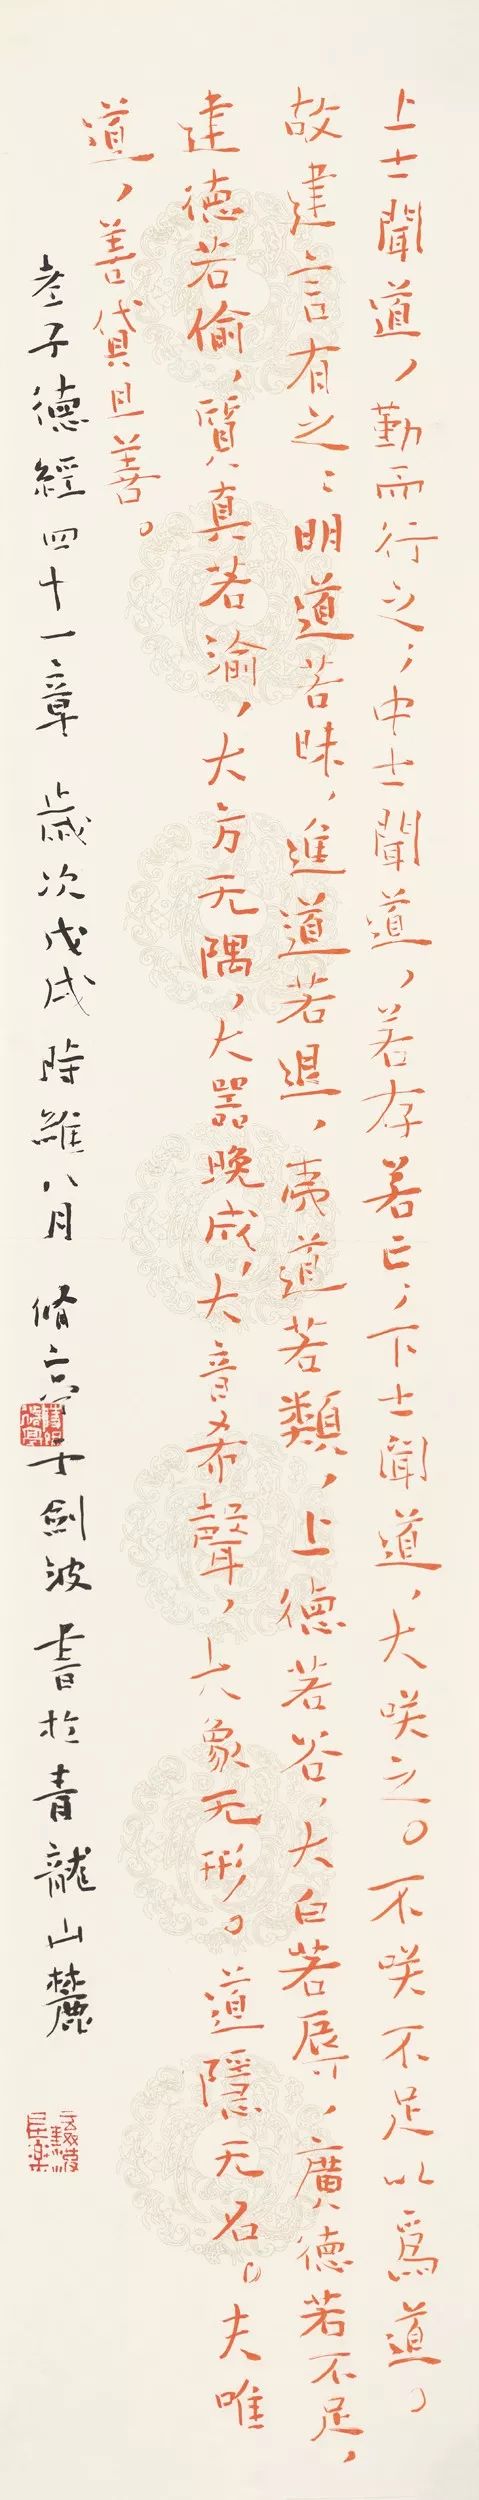 上士聞道，勤而行之；中士聞道，若存若亡；下士聞道，大咲之。不咲不足以爲道。
故建言有之：明道若昧，進道若退，夷道若類，上德若谷，大白若辱，廣德若不足，
建德若偷，質真若渝，大方无隅，大器晚成，大音希聲，大象无形。道隱无名。夫唯
道，善貸且善。
老子德經四十一章 歲次戊戌時雖八月 脩亭士劍波書於青龍山麓